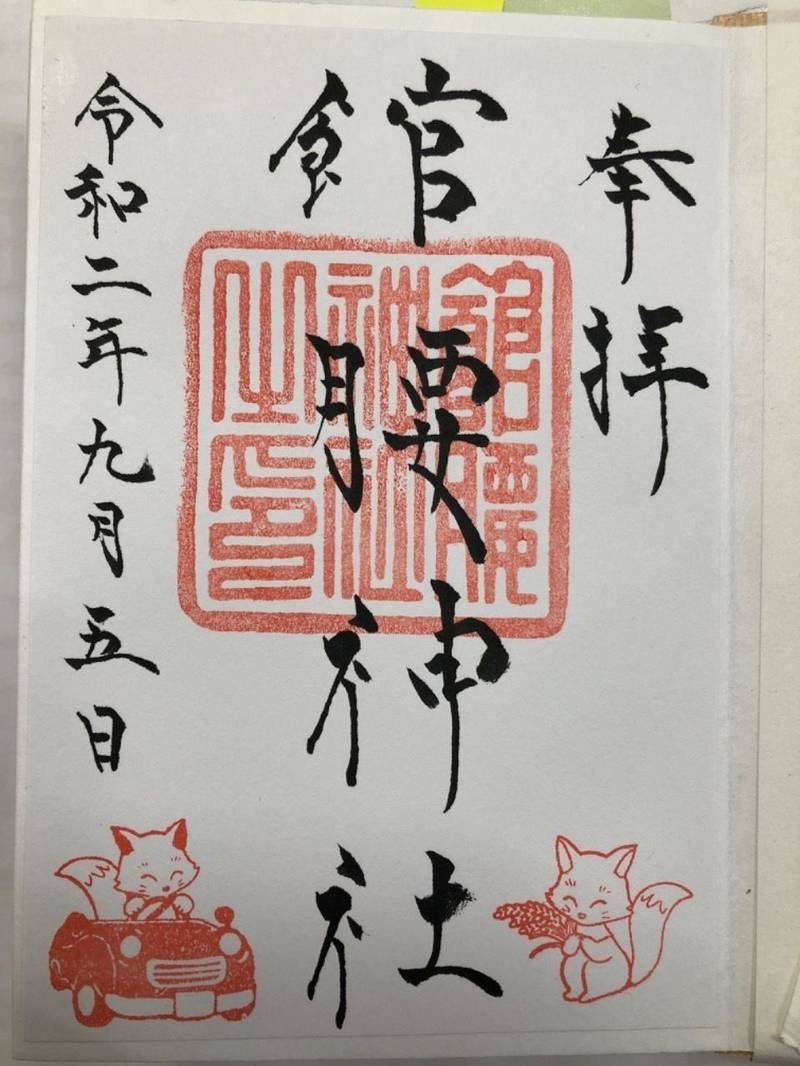 奉拝
館腰神社
館腰神社之印
令和二年九月五日